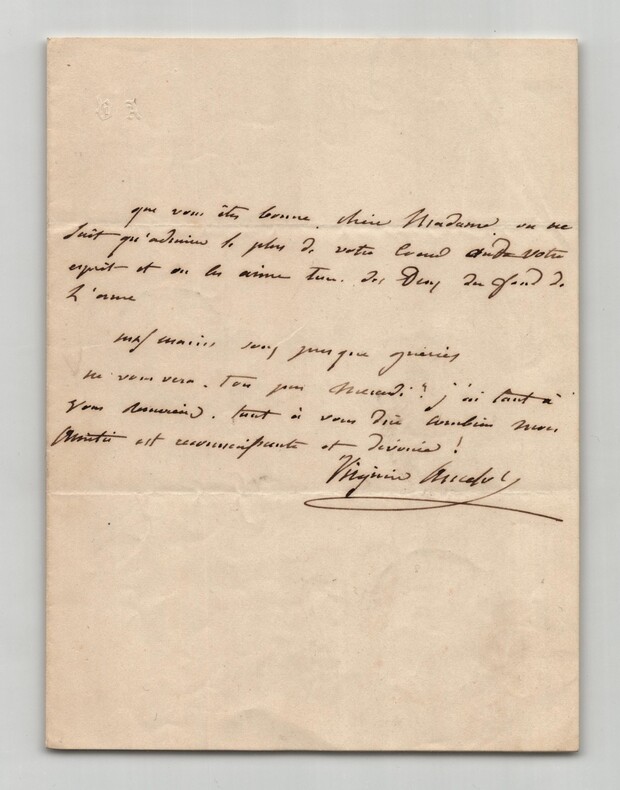 que vous êtes bonne, chère Madame, on ne
sait qu'admirer le plus de votre coeur ou de votre
esprit et on les aime tous les Deux du fond de
L'ame
mes mains sont presque guéries
ne vous verra-t-on pas Mercredi? j'ai tant à
vous remercier, tant à vous dire combien mon
Amitié est reconnaissante et dévouée!
Virginie Ancelot